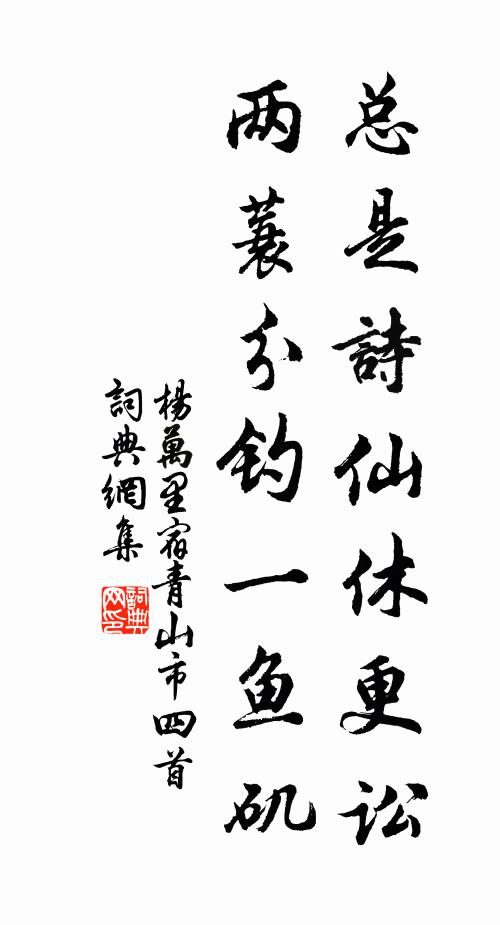 总是詩仙休更讼
两蓑分钓一鱼矶
楊萬里宿青山市四首
詞典網集
詞典网印